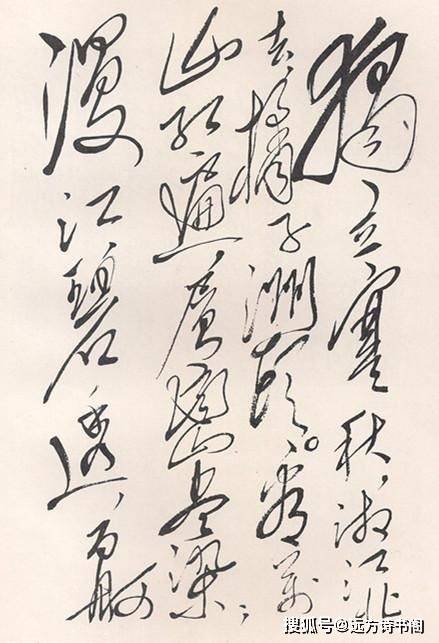 獨立寒秋，湘江北
去，橘子洲頭。看萬
山红遍，層巒尽染；
漫江碧透，百舸
搜狐号@远方诗书阁